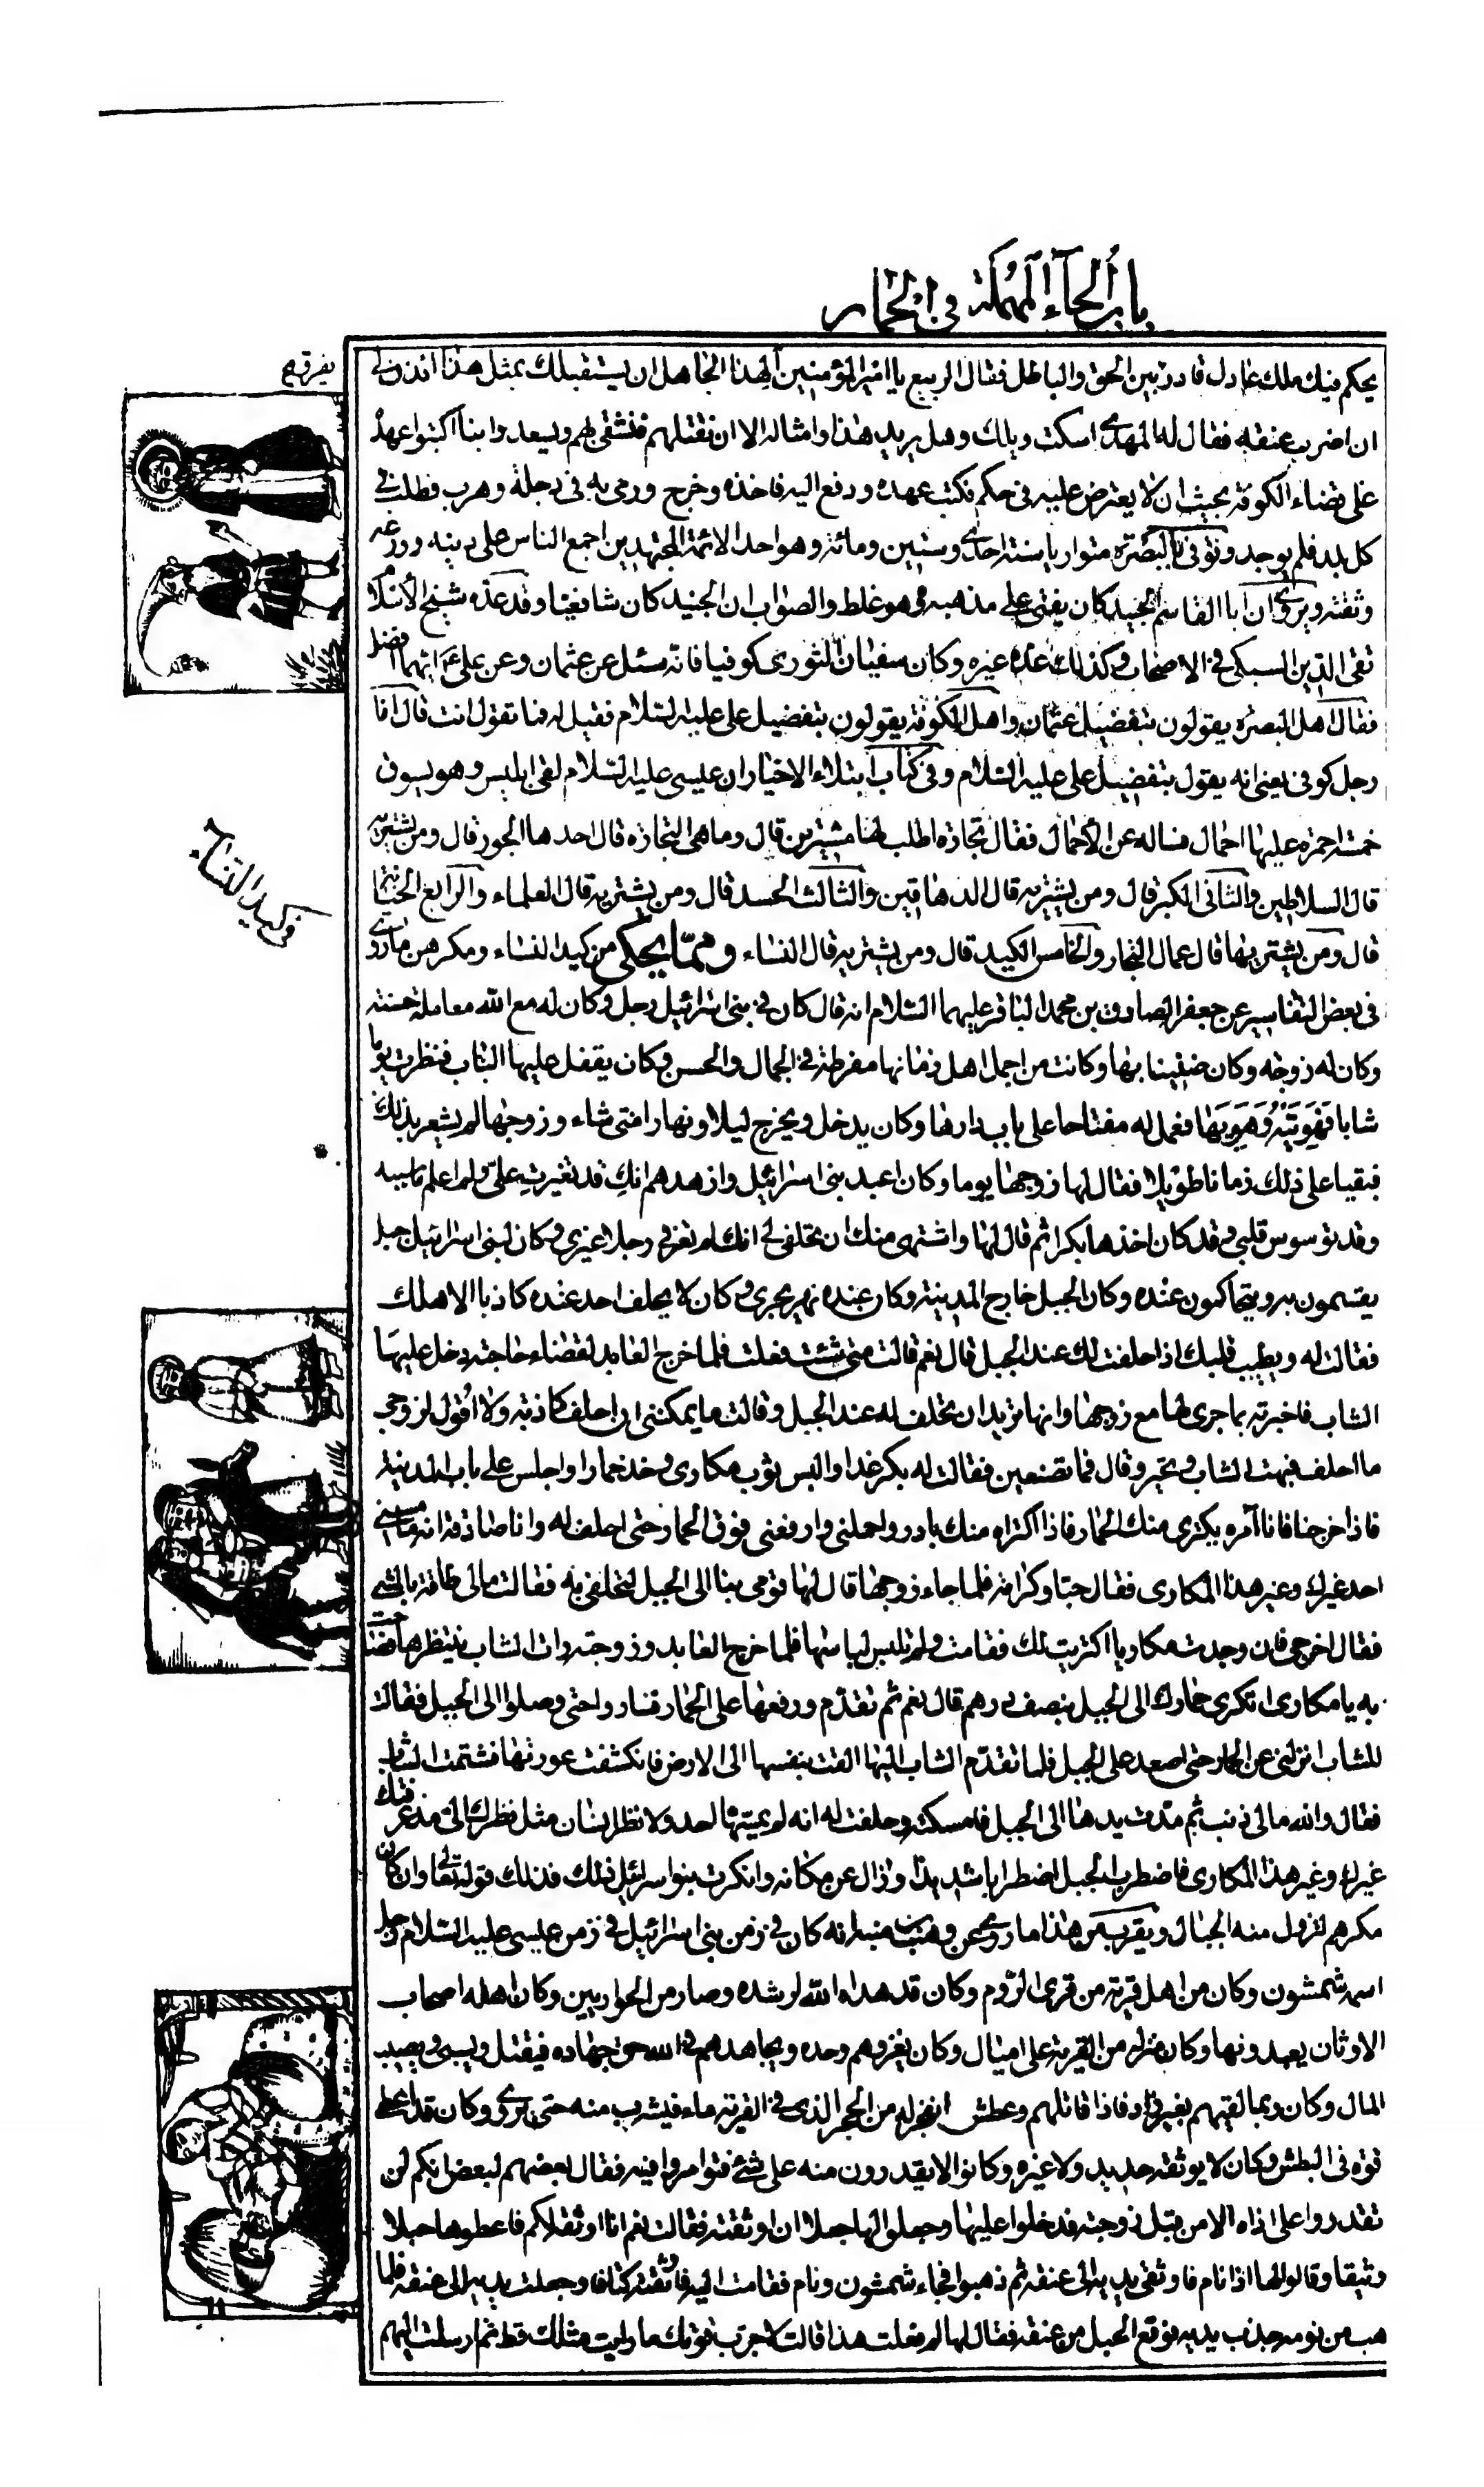 باب الحاء المهملة في الحمار
يحكم فيك ملك عادل قادر بين الحق والباطل فقال الربيع يا امير المؤمنين الهذا الجاهل ان يستقبلك بمثل هذا ائذن لي
ان اضرب عنقه فقال له المهدي اسكت ويلك وهل يريد هذا وامثاله الا ان نقتلهم فنشقى بهم ويسعدوا بنا اكتبوا عهده
على قضاء الكوفة بحيث ان لا يعترض عليه في حكم فكتب عهده ودفع اليه فاخذه وخرج ورمى به في دجلة وهرب فطلب في
كل بلد فلم يوجد وتوفي بالبصرة متواريا سنة احدى وستين ومائة وهو احد الائمة المجتهدين اجمع الناس على دينه وورعه
وثقته ويروى ان ابا القاسم الجنيد كان يفتى على مذهبه وهو غلط والصواب ان الجنيد كان شافعيا وقد عده شيخ الاسلام
تقى الدين السبكى في الاصحاب وكذلك عده غيره وكان سفيان الثورى كوفيا فانه سئل عن عثمان وعن على ايهما افضل
فقال اهل البصره يقولون بتفضيل عثمان واهل الكوفة يقولون بتفضيل على عليه السلام فقيل له فما تقول انت قال انا
رجل كوفى يعنى انه يقول بتفضيل على عليه السلام وفى كتاب ابتلاء الاخيار ان عيسى عليه السلام لقى ابليس وهو يسوق
خمسة احمرة عليها احمال فساله عن الاحمال فقال تجارة اطلب لها مشترين قال وما هى التجارة قال احدها الجور قال ومن يشتريه
قال السلاطين والثانى الكبر قال ومن يشتريه قال الدهاقين والثالث الحسد قال ومن يشتريه قال العلماء والرابع الخيانة
قال ومن يشتريها قال عمال التجار والخامس الكيد قال ومن يشتريه قال النساء ومما يحكى من كيد النساء ومكرهن ما روى
فى بعض التفاسير عن جعفر الصادق بن محمد الباقر عليهما السلام انه قال كان في بنى اسرائيل رجل وكان له مع الله معاملة حسنة
وكان له زوجه وكان ضنينا بها وكانت من اجمل اهل زمانها مفرطة في الجمال والحسن وكان يقفل عليها الباب فنظرت يوما
شابا فهويته وهويها فعمل له مفتاحا على باب دارها وكان يدخل ويخرج ليلا ونهارا متى شاء وزوجها لم يشعر بذلك
فبقيا على ذلك زمانا طويلا فقال لها زوجها يوما وكان اعبد بنى اسرائيل وازهدهم انك قد تغيرت علىّ ولم اعلم ما سببه
وقد توسوس قلبي وقد كان اخذها بكرا ثم قال لها واشتهى منك ان تحلفى لى انك لم تعرفى رجلا غيرى وكان لبنى اسرائيل جبل
يقسمون به ويتحاكمون عنده وكان الجبل خارج المدينة وكان عنده نهر يجرى وكان لا يحلف احد عنده كاذبا الا هلك
فقالت له ويطيب قلبك اذا حلفت لك عند الجبل قال نعم قالت متى شئت فعلت فلما خرج العابد لقضاء حاجته دخل عليها
الشاب فاخبرته بما جرى لها مع زوجها وانها تريد ان تحلف له عند الجبل وقالت ما يمكننى ان احلف كاذبة ولا اقول لزوجى
ما احلف فبهت الشاب وتحير وقال فما تصنعين فقالت له بكر غدا والبس ثوب مكارى وخذ حمارا واجلس على باب المدينة
فاذا خرجنا فانا آمره يكترى منك الحمار فاذا اكتراه منك بادر واحملنى وارفعنى فوق الحمار حتى احلف له وانا صادقة انه ما مسنى
احد غيرك وغير هذا المكارى فقال حبا وكرامة فلما جاء زوجها قال لها قومى بنا الى الجبل لتحلفى به فقالت مالى طاقة بالمشى
فقال اخرجى فان وجدت مكاريا اكتريت لك فقامت ولم تلبس لباسها فلما خرج العابد وزوجته رات الشاب ينتظرها فصاحت
به يا مكارى اتكرى حمارك الى الجبل بنصف درهم قال نعم ثم تقدم ورفعها على الحمار فساروا حتى وصلوا الى الجبل فقالت
للشاب انزلنى عن الحمار حتى اصعد على الجبل فلما تقدم الشاب اليها القت بنفسها الى الارض فانكشفت عورتها فشتمت الشاب
فقال والله مالى ذنب ثم مدت يدها الى الجبل فامسكته وحلفت له انه لم يمسها احد ولا نظر انسان مثل نظرك الى مذ عرفتك
غيرك وغير هذا المكارى فاضطرب الجبل اضطرابا شديدا وزال عن مكانه وانكرت بنو اسرائيل ذلك فذلك قوله تعالى وان كان
مكرهم لتزول منه الجبال ويقرب من هذا ما روى عن وهب بن منبه انه كان في زمن بنى اسرائيل في زمن عيسى عليه السلام رجل
اسمه شمشون وكان من اهل قرية من قرى الروم وكان قد هداه الله لرشده وصار من الحواريين وكان اهله اصحاب
الاوثان يعبدونها وكان منزله من القرية على اميال وكان يغزوهم وحده ويجاهدهم في الله حق جهاده فيقتل ويسبى ويصيب
المال وكان ربما لقيهم بغير زاد فاذا قاتلهم وعطش انفجر له من الحجر الذى في القرية ماء فيشرب منه حتى يروى وكان قد اعطى
قوة فى البطش وكان لا يوثقه حديد ولا غيره وكانوا لا يقدرون منه على شئ فتوامروا فيه فقال بعضهم لبعض انكم لن
تقدروا على اذاه الا من قبل زوجته فدخلوا عليها وجعلوا لها جعلا ان اوثقته فقالت نعم انا اوثقه لكم فاعطوها حبلا
وثيقا وقالوا لها اذا نام فاوثقى يديه الى عنقه ثم ذهبوا فجاء شمشون ونام فقامت اليه فاوثقته كتافا وجعلت يديه الى عنقه فلما
هب من نومه جذب يديه فوقع الحبل من عنقه فقال لها لم فعلت هذا قالت لاجرب قوتك ما رايت مثلك قط ثم ارسلت اليهم
في كيد النساء